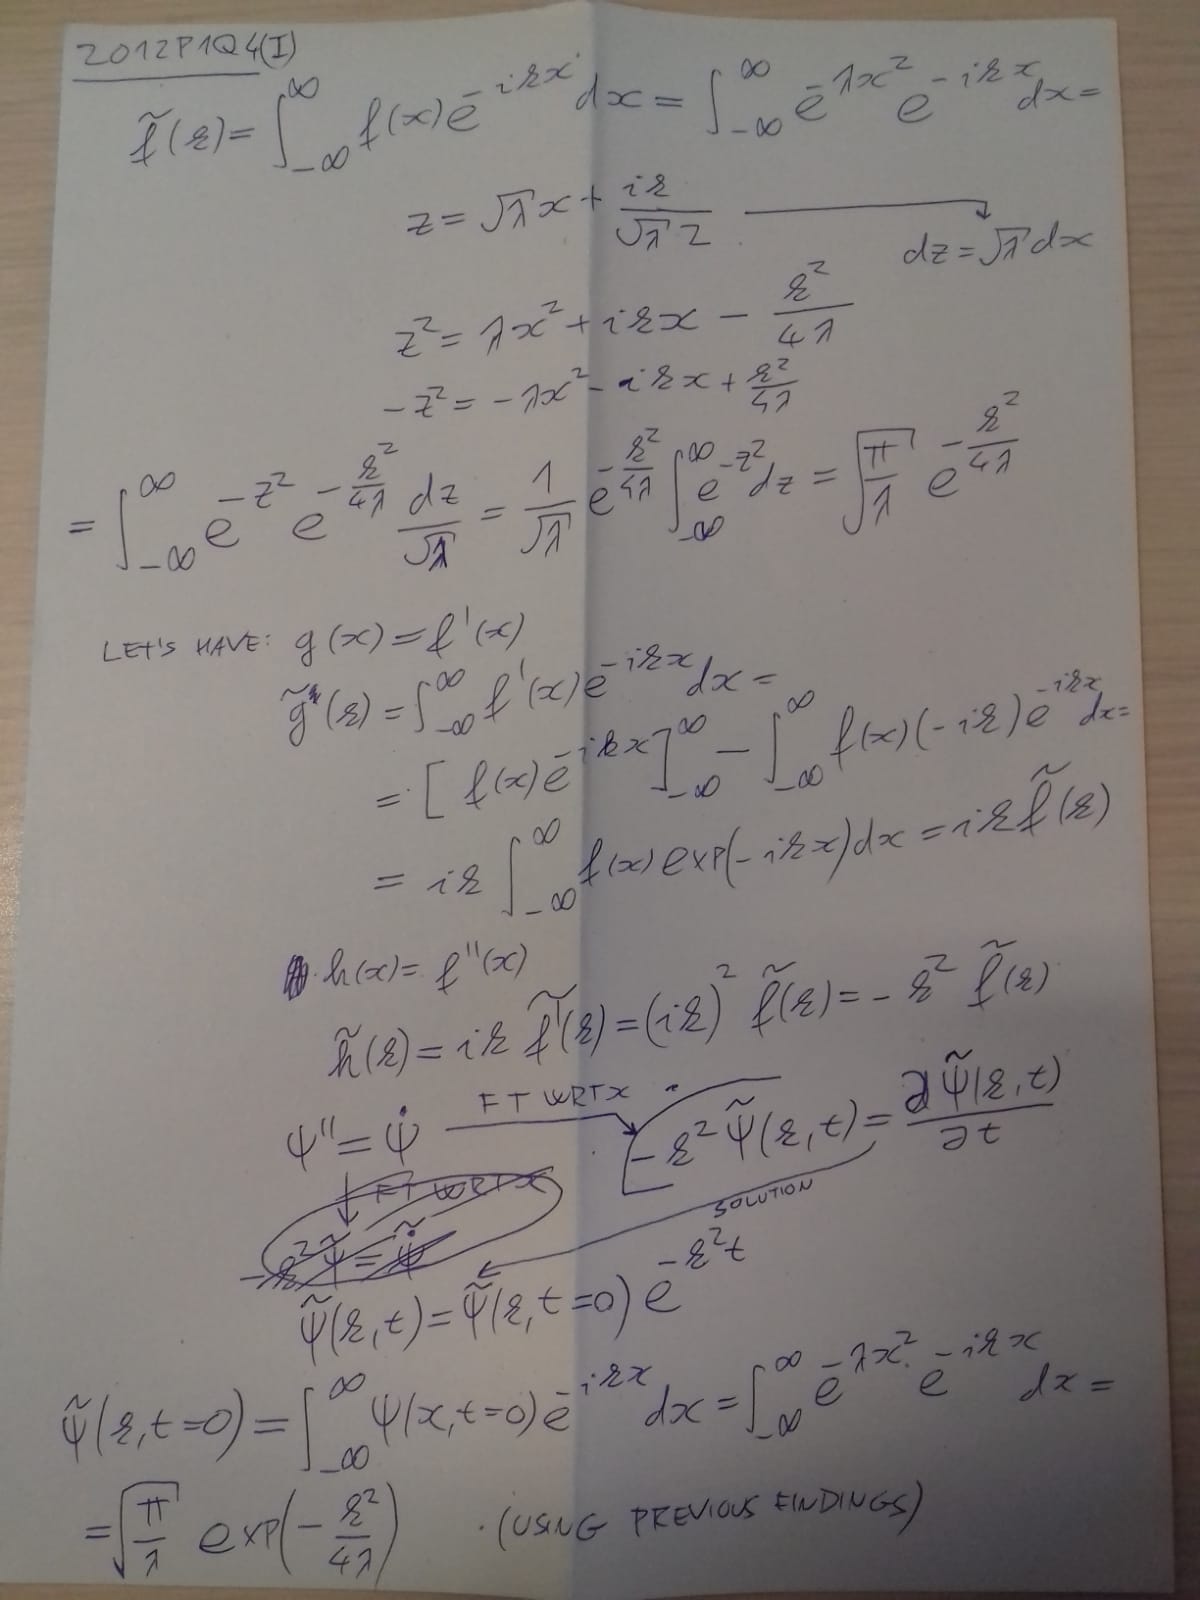 2012P1Q4(I)
f̃(k) = ∫_{-∞}^{∞} f(x) e^{-ikx} dx = ∫_{-∞}^{∞} e^{-λx²} e^{-ikx} dx =
z = √λ x + ik/(√λ 2) ⟶ dz = √λ dx
z² = λx² + ikx − k²/4λ
−z² = −λx² − ikx + k²/4λ
= ∫_{-∞}^{∞} e^{-z²} e^{-k²/4λ} dz/√λ = 1/√λ e^{-k²/4λ} ∫_{-∞}^{∞} e^{-z²} dz = √(π/λ) e^{-k²/4λ}
LET'S HAVE: g(x) = f'(x)
g̃(k) = ∫_{-∞}^{∞} f'(x) e^{-ikx} dx =
= [f(x) e^{-ikx}]_{-∞}^{∞} − ∫_{-∞}^{∞} f(x)(−ik) e^{-ikx} dx =
= ik ∫_{-∞}^{∞} f(x) exp(−ikx) dx = ik f̃(k)
h(x) = f''(x)
h̃(k) = ik f̃'(k) = (ik)² f̃(k) = −k² f̃(k)
ψ'' = ψ̇ ⟶ FT WRT x −k² ψ̃(k,t) = ∂ψ̃(k,t)/∂t
FT WRT x
−k² ψ̃ = ψ̃̇
SOLUTION
ψ̃(k,t) = ψ̃(k,t=0) e^{-k²t}
ψ̃(k,t=0) = ∫_{-∞}^{∞} ψ(x,t=0) e^{-ikx} dx = ∫_{-∞}^{∞} e^{-λx²} e^{-ikx} dx =
= √(π/λ) exp(−k²/4λ) (USING PREVIOUS FINDINGS)